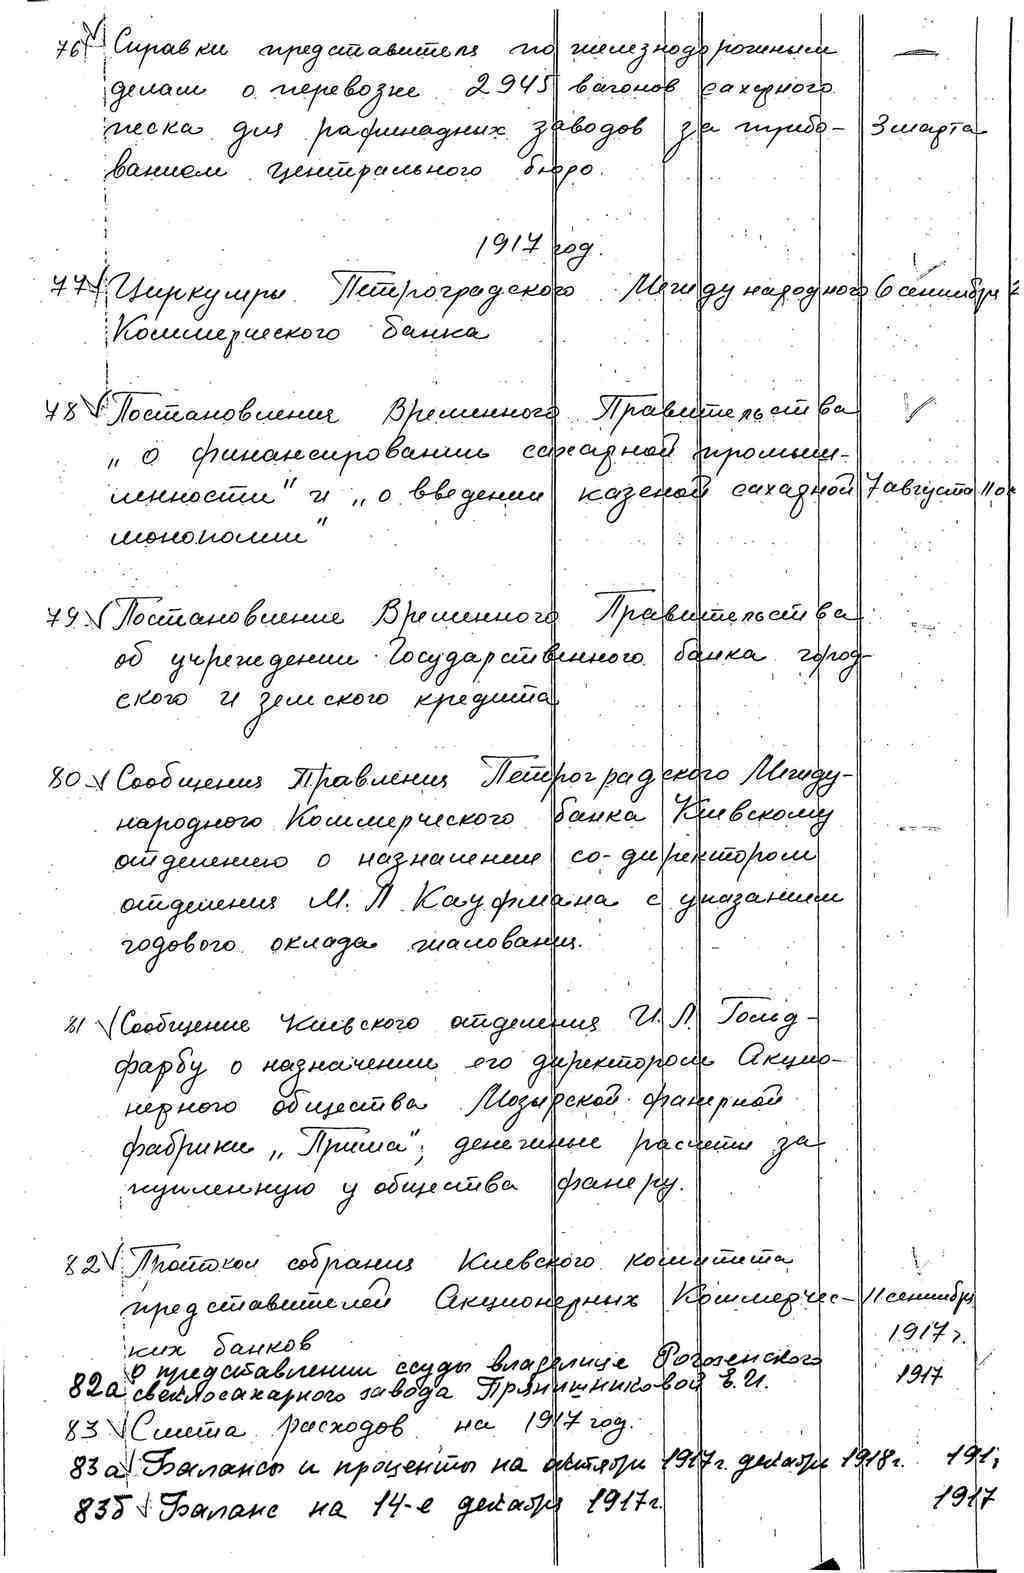 76 Справки представителя по железнодорожным —
делам о перевозке 2945 вагонов сахарного
песка для рафинадных заводов за требо- 3 марта
ванием центрального бюро.
1917 год.
77 Циркуляры Петроградского Международного 6 сентября
Коммерческого банка
78 Постановления Временного Правительства
„о финансировании сахарной промыш-
ленности" и „о введении казеной сахарной 7 августа 11
монополии"
79. Постановление Временного Правительства
об учреждении Государственного банка город-
ского и земского кредита
80 Сообщения Правления Петроградского Между-
народного Коммерческого банка Киевскому
отделению о назначении со-директором
отделения М. Л. Кауфмана с указанием
годового оклада жалования.
81 Сообщение Киевского отделения И. Л. Гольд-
фарбу о назначении его директором Акцио-
нерного общества Мозырской фанерной
фабрики „Прима"; денежные расчеты за
купленную у общества фанеру.
82 Протокол собрания Киевского комитета
представителей Акционерных Коммерчес- 11 сентября
ких банков 1917 г.
о представлении ссуды владелице Рогозенского
82а свеклосахарного завода Прянишниковой Е. И. 1917
83 Смета расходов на 1917 год.
83а Балансы и проценты на октябрь 1917 г. декабрь 1918 г.
83б Баланс на 14-е декабря 1917 г. 1917